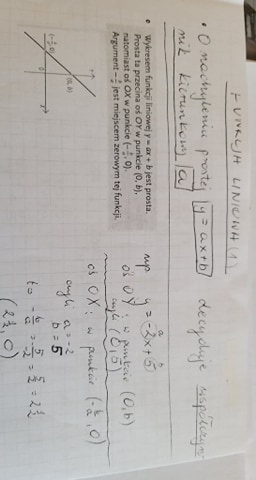 FUNKCJA LINIOWA (1)
• O nachyleniu prostej y = ax + b decyduje współczyn
nik kierunkowy a
• Wykresem funkcji liniowej y = ax + b jest prosta.
Prosta ta przecina oś OY w punkcie (0, b),
natomiast oś OX w punkcie (-b/a, 0).
Argument -b/a jest miejscem zerowym tej funkcji.
(-b/a, 0)
(0, b)
0
np y = -2x + 5
a b
oś OY: w punkcie (0, b)
czyli (0, 5)
oś OX: w punkcie (-b/a, 0)
czyli a = -2
b = 5
to -b/a = -5/-2 = 5/2 = 2 1/2
(2 1/2, 0)